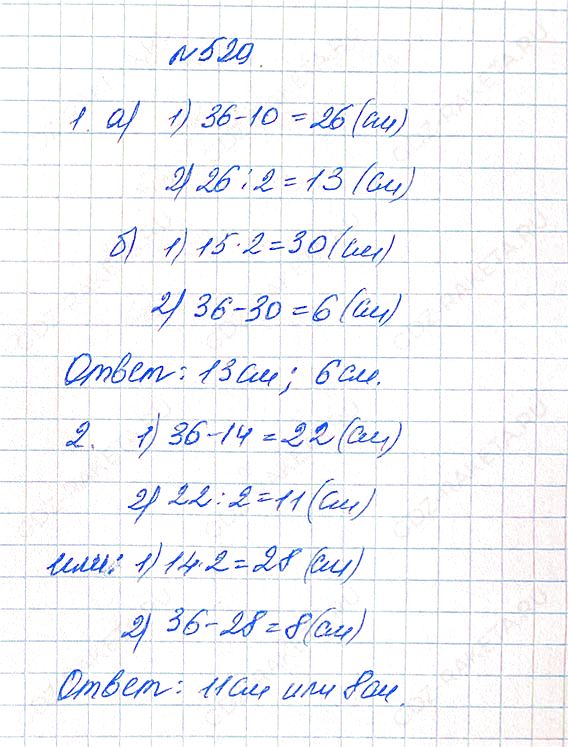 №529.
1. а) 1) 36-10=26(см)
2) 26:2=13 (см)
б) 1) 15·2=30(см)
2) 36-30=6(см)
Ответ: 13см; 6см.
2. 1) 36-14=22(см)
2) 22:2=11(см)
или: 1) 14·2=28 (см)
2) 36-28=8(см)
Ответ: 11см или 8см.